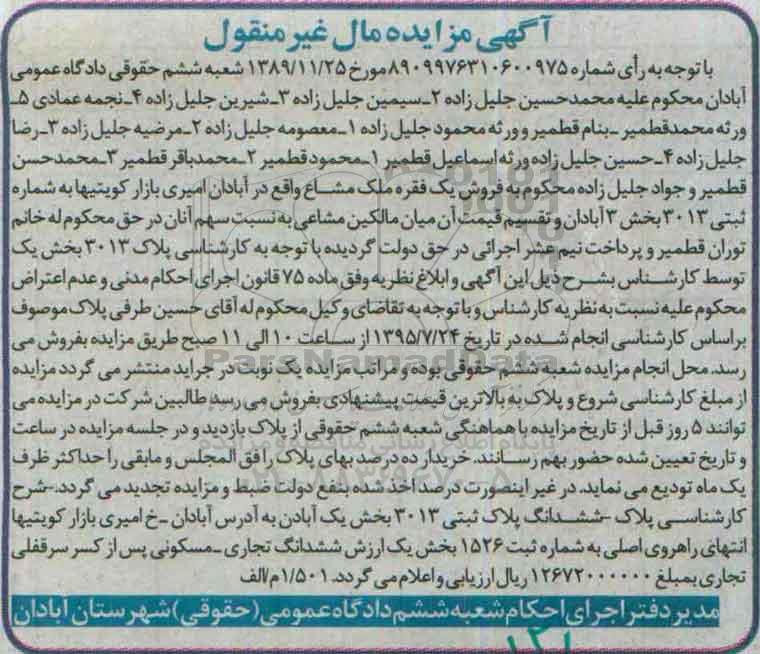 آگهی مزایده مال غیر منقول
با توجه به رأی شماره ۸۹۰۹۹۷۶۳۱۰۶۰۰۹۷۵ مورخ ۱۳۸۹/۱۱/۲۵ شعبه ششم حقوقی دادگاه عمومی
آبادان محکوم علیه محمدحسین جلیل زاده ۲ـ سیمین جلیل زاده ۳ـ شیرین جلیل زاده ۴ـ نجمه عمادی ۵ـ
ورثه محمدقطمیر ـ بنام قطمیر و ورثه محمود جلیل زاده ۱ـ معصومه جلیل زاده ۲ـ مرضیه جلیل زاده ۳ـ رضا
جلیل زاده ۴ـ حسین جلیل زاده ورثه اسماعیل قطمیر ۱ـ محمود قطمیر ۲ـ محمدباقر قطمیر ۳ـ محمدحسن
قطمیر و جواد جلیل زاده محکوم به فروش یک فقره ملک مشاع واقع در آبادان امیری بازار کویتیها به شماره
ثبتی ۳۰۱۳ بخش ۳ آبادان و تقسیم قیمت آن میان مالکین مشاعی به نسبت سهم آنان در حق محکوم له خانم
توران قطمیر و پرداخت نیم عشر اجرائی در حق دولت گردیده با توجه به کارشناسی پلاک ۳۰۱۳ بخش یک
توسط کارشناس بشرح ذیل این آگهی و ابلاغ نظریه وفق ماده ۷۵ قانون اجرای احکام مدنی و عدم اعتراض
محکوم علیه نسبت به نظریه کارشناس و با توجه به تقاضای وکیل محکوم له آقای حسین طرفی پلاک موصوف
براساس کارشناسی انجام شده در تاریخ ۱۳۹۵/۷/۲۴ از ساعت ۱۰ الی ۱۱ صبح طریق مزایده بفروش می
رسد. محل انجام مزایده شعبه ششم حقوقی بوده و مراتب مزایده یک نوبت در جراید منتشر می گردد مزایده
از مبلغ کارشناسی شروع و پلاک به بالاترین قیمت پیشنهادی بفروش می رسد طالبین شرکت در مزایده می
توانند ۵ روز قبل از تاریخ مزایده با هماهنگی شعبه ششم حقوقی از پلاک بازدید و در جلسه مزایده در ساعت
و تاریخ تعیین شده حضور بهم رسانند. خریدار ده درصد بهای پلاک را فق المجلس و مابقی را حداکثر ظرف
یک ماه تودیع می نماید. در غیر اینصورت درصد اخذ شده بنفع دولت ضبط و مزایده تجدید می گردد.-شرح
کارشناسی پلاک -ششدانگ پلاک ثبتی ۳۰۱۳ بخش یک آبادن به آدرس آبادان ـ خ امیری بازار کویتیها
انتهای راهروی اصلی به شماره ثبت ۱۵۲۶ بخش یک ارزش ششدانگ تجاری ـ مسکونی پس از کسر سرقفلی
تجاری بمبلغ ۱۲۶۷۲۰۰۰۰۰۰ ریال ارزیابی و اعلام می گردد. ۱/۵۰۱م/الف
مدیر دفتر اجرای احکام شعبه ششم دادگاه عمومی (حقوقی) شهرستان آبادان
ParsNamadData